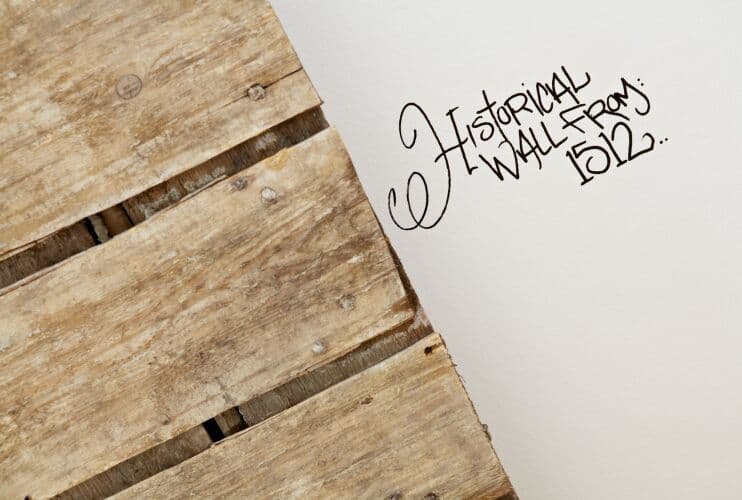 HISTORICIAL
WALL FROM:
1512..